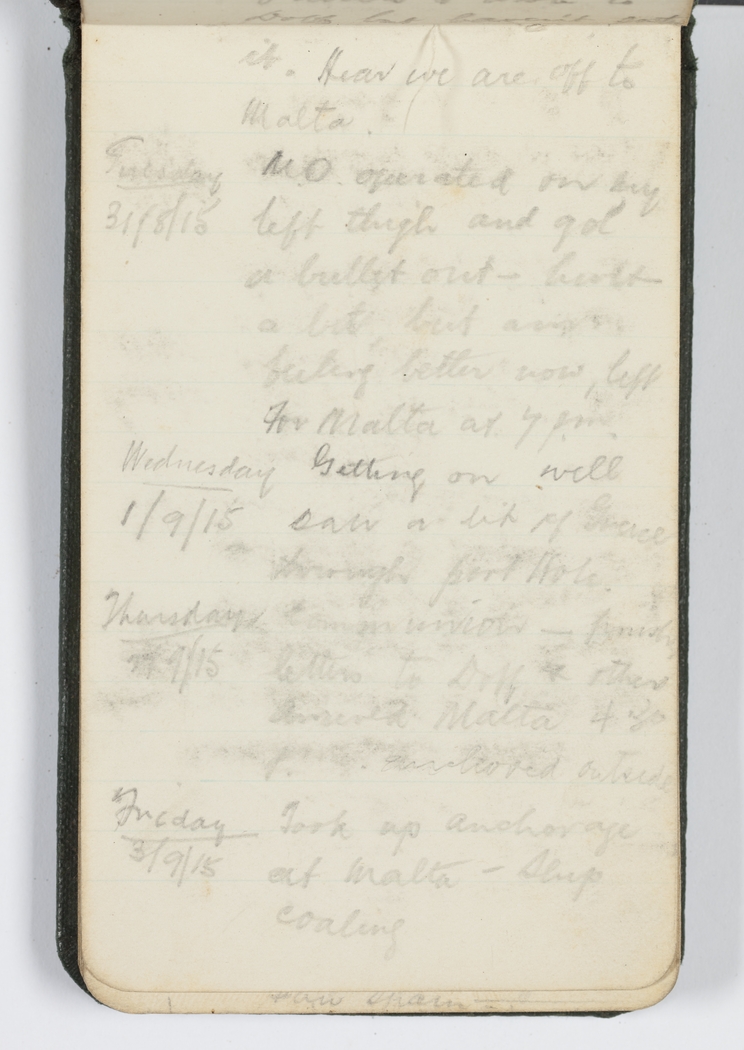 it. Hear we are off to
Malta.
Tuesday M.O. operated on my
31/8/15 left thigh and got
a bullet out – hurt
a bit, but am
feeling better now, left
for Malta at 7 pm.
Wednesday Getting on well
1/9/15 saw a bit of Greece
through port hole.
Thursday Communion –
2/9/15 letters to Doff & other
Arrived Malta 4.30
p.m. anchored outside
Friday Took up anchorage
3/9/15 at Malta – Ship
coaling